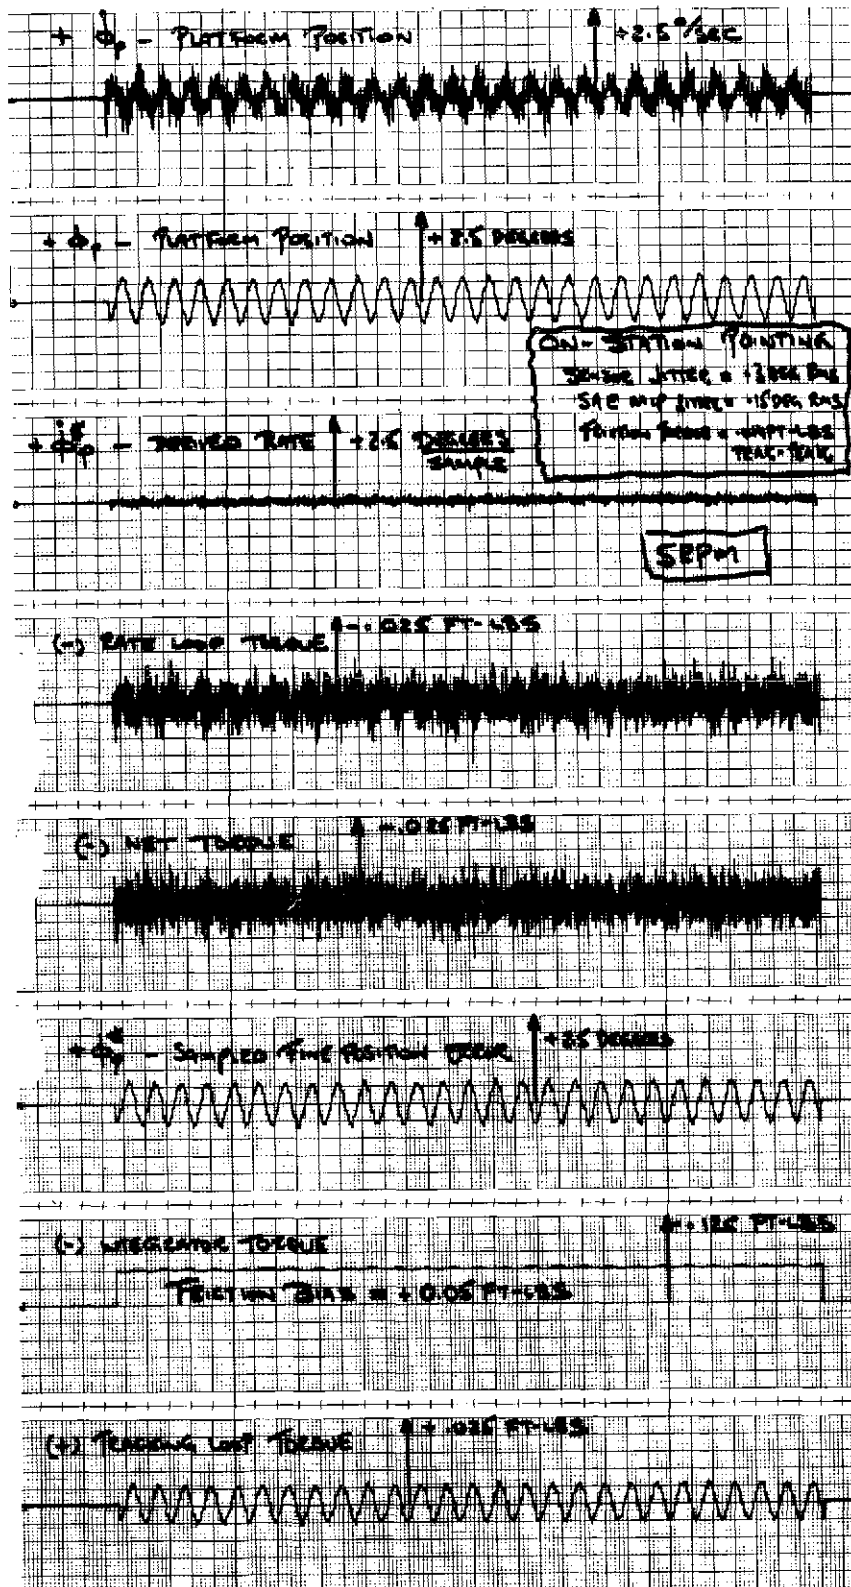 + φ̇p - PLATFORM POSITION
+2.5°/SEC
+ φp - PLATFORM POSITION
+ 2.5 DEGREES
ON-STATION POINTING
SENSOR JITTER = DEG RMS
JITTER = .15 DEG RMS
FRICTION TORQUE = FT-LBS
PEAK-PEAK
+ φ̇*p - DERIVED RATE
+2.5 DEGREES
SAMPLE
5RPM
(-) RATE LOOP TORQUE
-.025 FT-LBS
(-) NET TORQUE
-.025 FT-LBS
+ φ*p - SAMPLED FINE POSITION ERROR
+2.5 DEGREES
(-) INTEGRATOR TORQUE
-.125 FT-LBS
FRICTION BIAS = + 0.05 FT-LBS
(+) TRACKING LOOP TORQUE
+ .025 FT-LBS